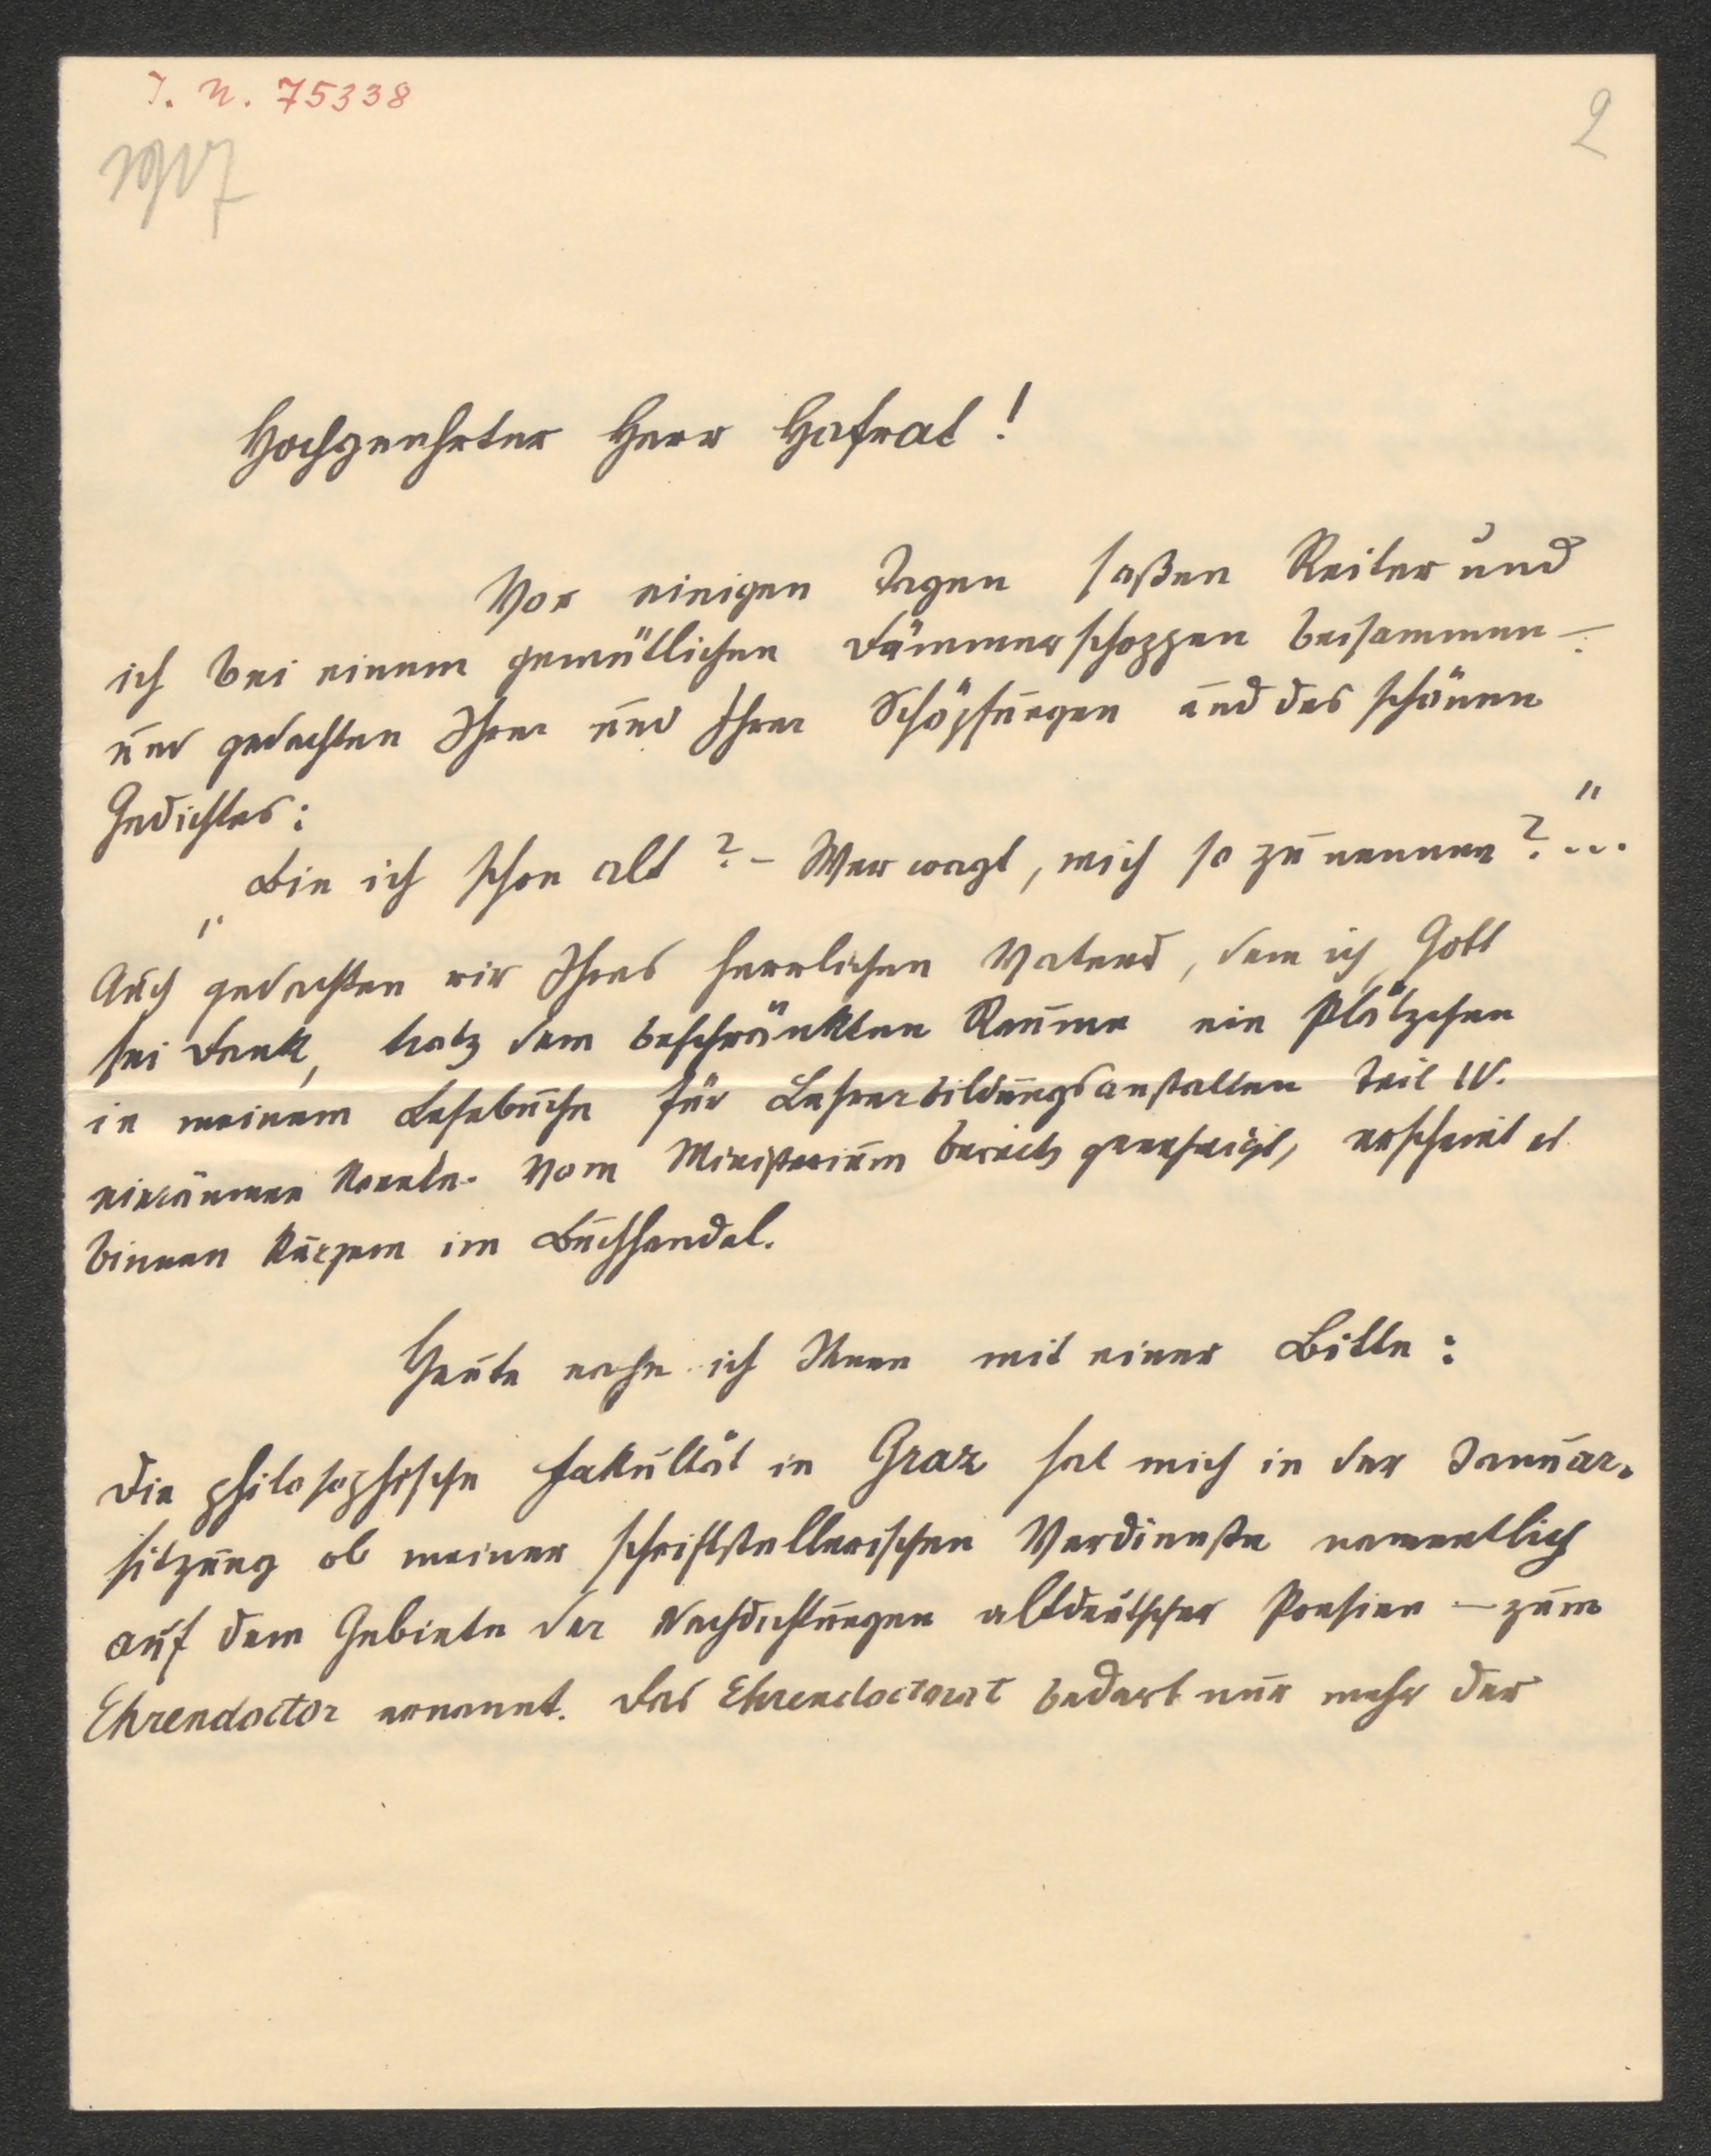 I. N. 75338
1917
2
Hochgeehrter Herr Hofrat!
Vor einigen Tagen saßen Reiter und
ich bei einem gemütlichen Dämmerschoppen beisammen –
und gedachten Ihrer und Ihrer Schöpfungen und des schönen
Gedichtes:
„Bin ich schon alt? – Wer wagt, mich so zu nennen?"...
Auch gedachten wir Ihres herrlichen Vaters, dem ich, Gott
sei Dank, trotz dem beschränkten Raume ein Plätzchen
in meinem Lesebuche für Lehrerbildungsanstalten Teil IV.
einräumen konnte. Vom Ministerium bereits genehmigt, erscheint es
binnen kurzem im Buchhandel.
Heute nahe ich Ihnen mit einer Bitte:
Die philosophische Fakultät in Graz hat mich in der Januar-
sitzung ob meiner schriftstellerischen Verdienste namentlich
auf dem Gebiete der Nachdichtungen altdeutscher Poesien – zum
Ehrendoctor ernannt. Das Ehrendoctorat bedarf nur mehr der